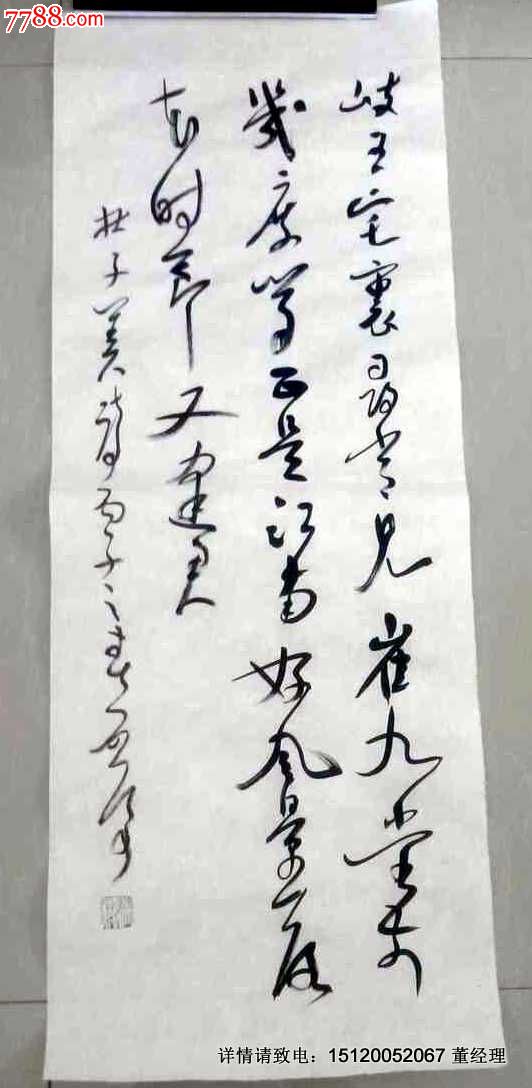 7788.com
岐王宅裏尋常見崔九堂前
幾度聞正是江南好風景落
花時節又逢君
杜子美詩 丙子之春
详情请致电：15120052067 董经理